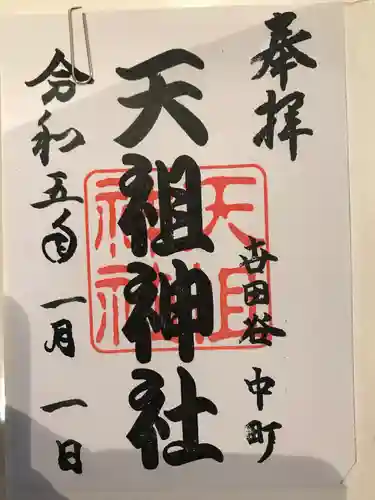 奉拝
世田谷 中町
天祖神社
天祖神社
令和五年 一月 一日